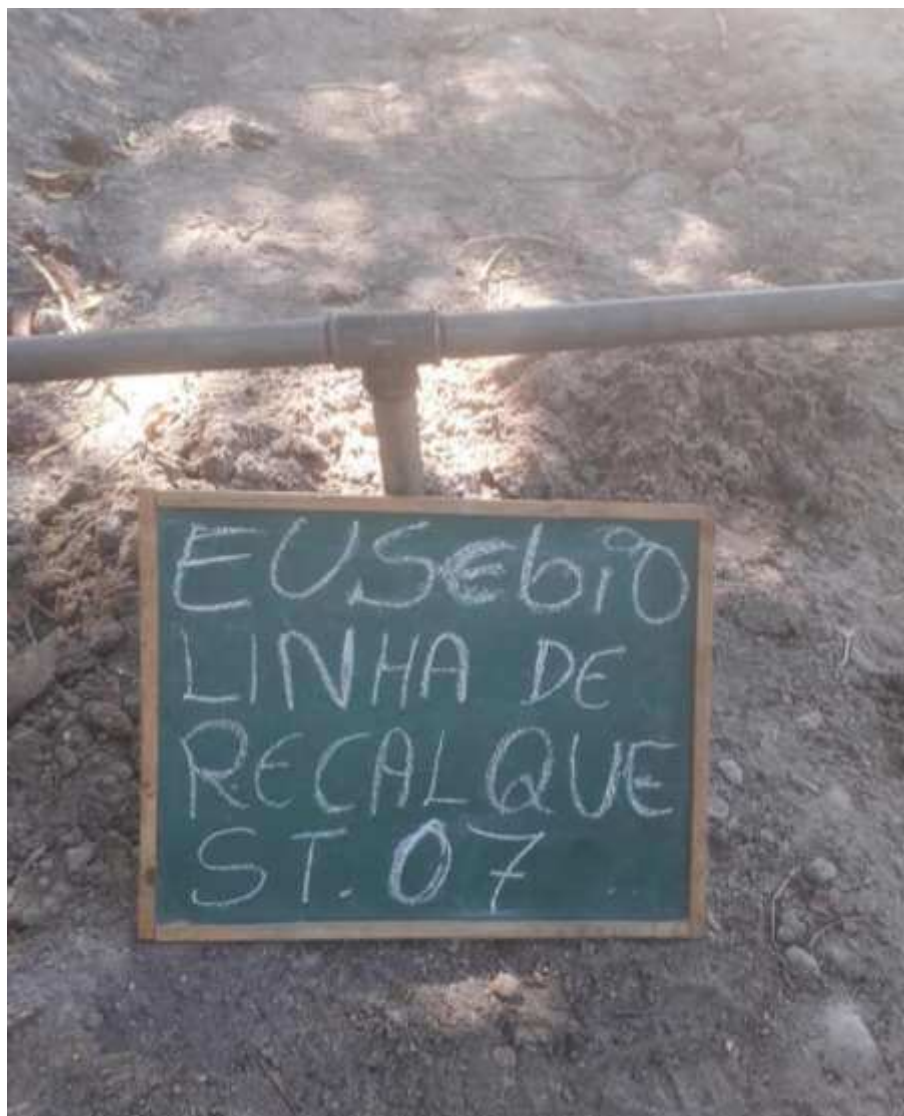 EUSEBIO
LINHA DE
RECALQUE
ST. 07